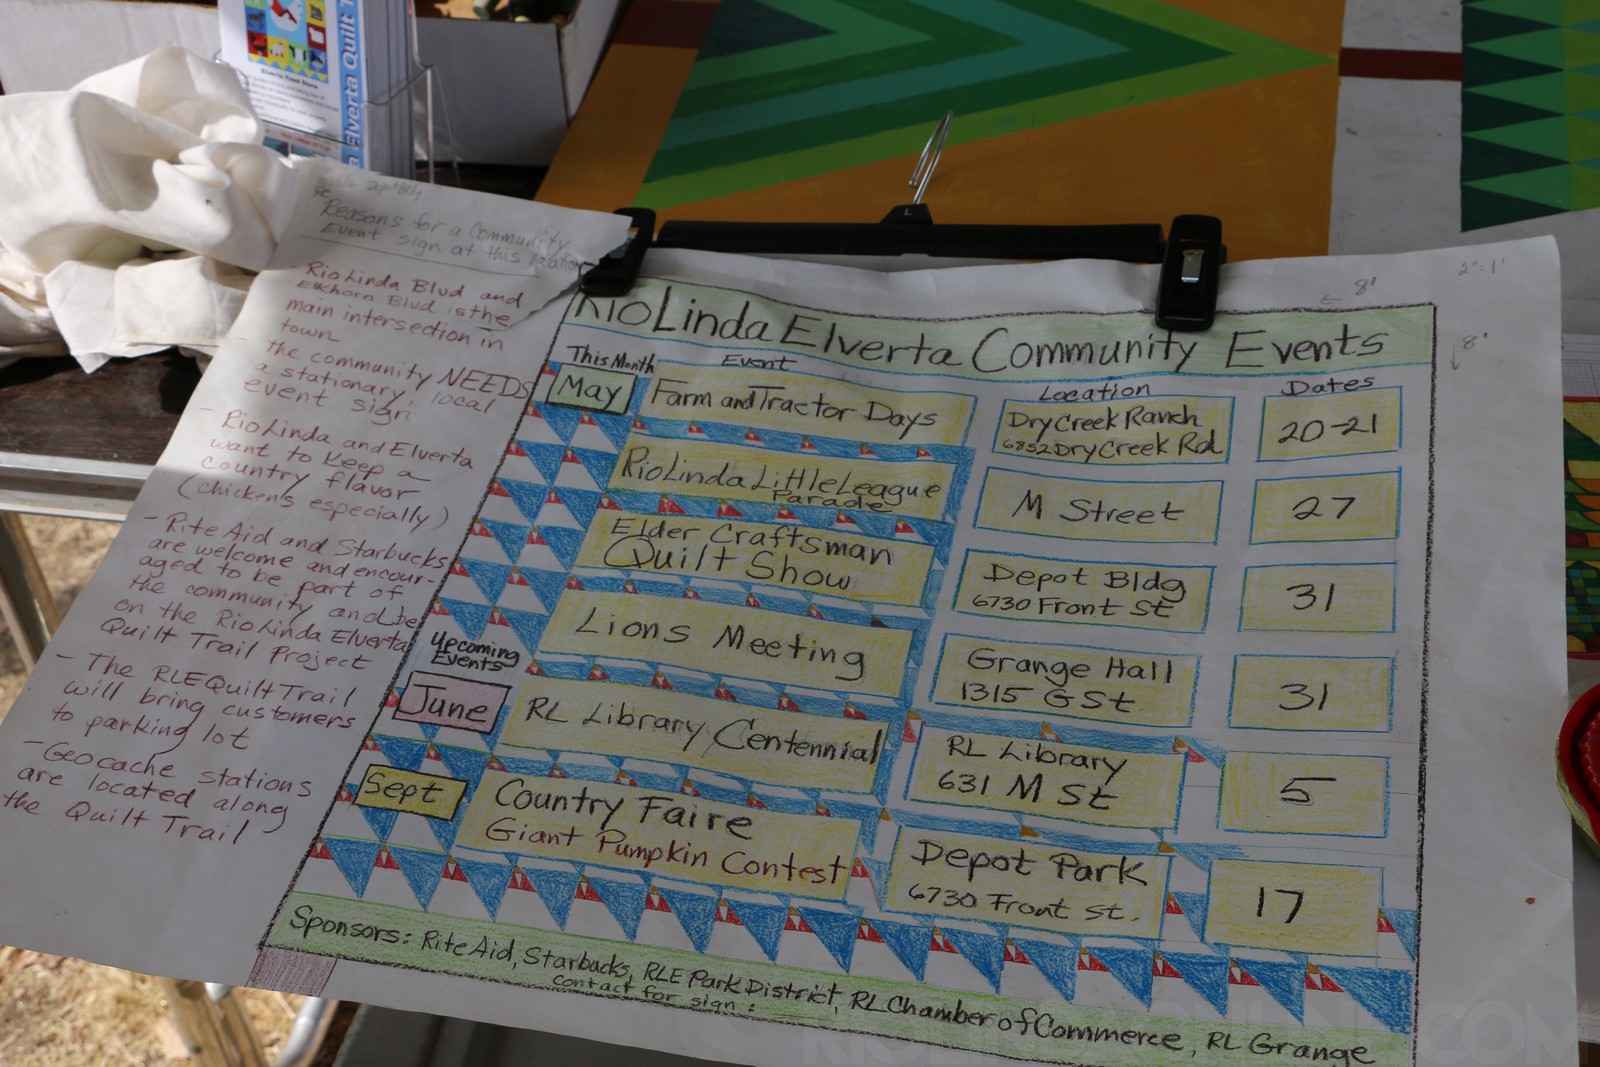 Elverta Feed Store
Elverta Quilt
Depot Bldg
Reasons for a Community
Event sign at this location
- Rio Linda Blvd and
Elkhorn Blvd is the
main intersection in
town
- the community NEEDS
a stationary, local
event sign
- Rio Linda and Elverta
want to keep a
country flavor
(chickens especially)
- Rite Aid and Starbucks
are welcome and encour-
aged to be part of
the community and be
on the Rio Linda Elverta
Quilt Trail Project
- The RLE Quilt Trail
will bring customers
to parking lot
- Geocache stations
are located along
the Quilt Trail
2":1'
8'
8'
Rio Linda Elverta Community Events
This Month Event Location Dates
May Farm and Tractor Days Dry Creek Ranch 20-21
6852 Dry Creek Rd
Rio Linda Little League M Street 27
Parade
Elder Craftsman Depot Bldg 31
Quilt Show 6730 Front St
Lions Meeting Grange Hall 31
1315 G St
Upcoming
Events
June RL Library Centennial RL Library 5
631 M St
Sept Country Faire Depot Park 17
Giant Pumpkin Contest 6730 Front St.
Sponsors: Rite Aid, Starbucks, RLE Park District, RL Chamber of Commerce, RL Grange
contact for sign: